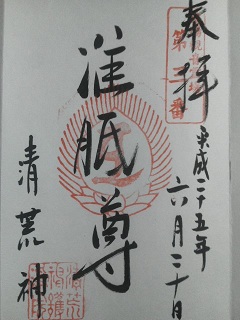 奉拝
第三番
平成二十五年
六月二十日
准胝尊
清荒神